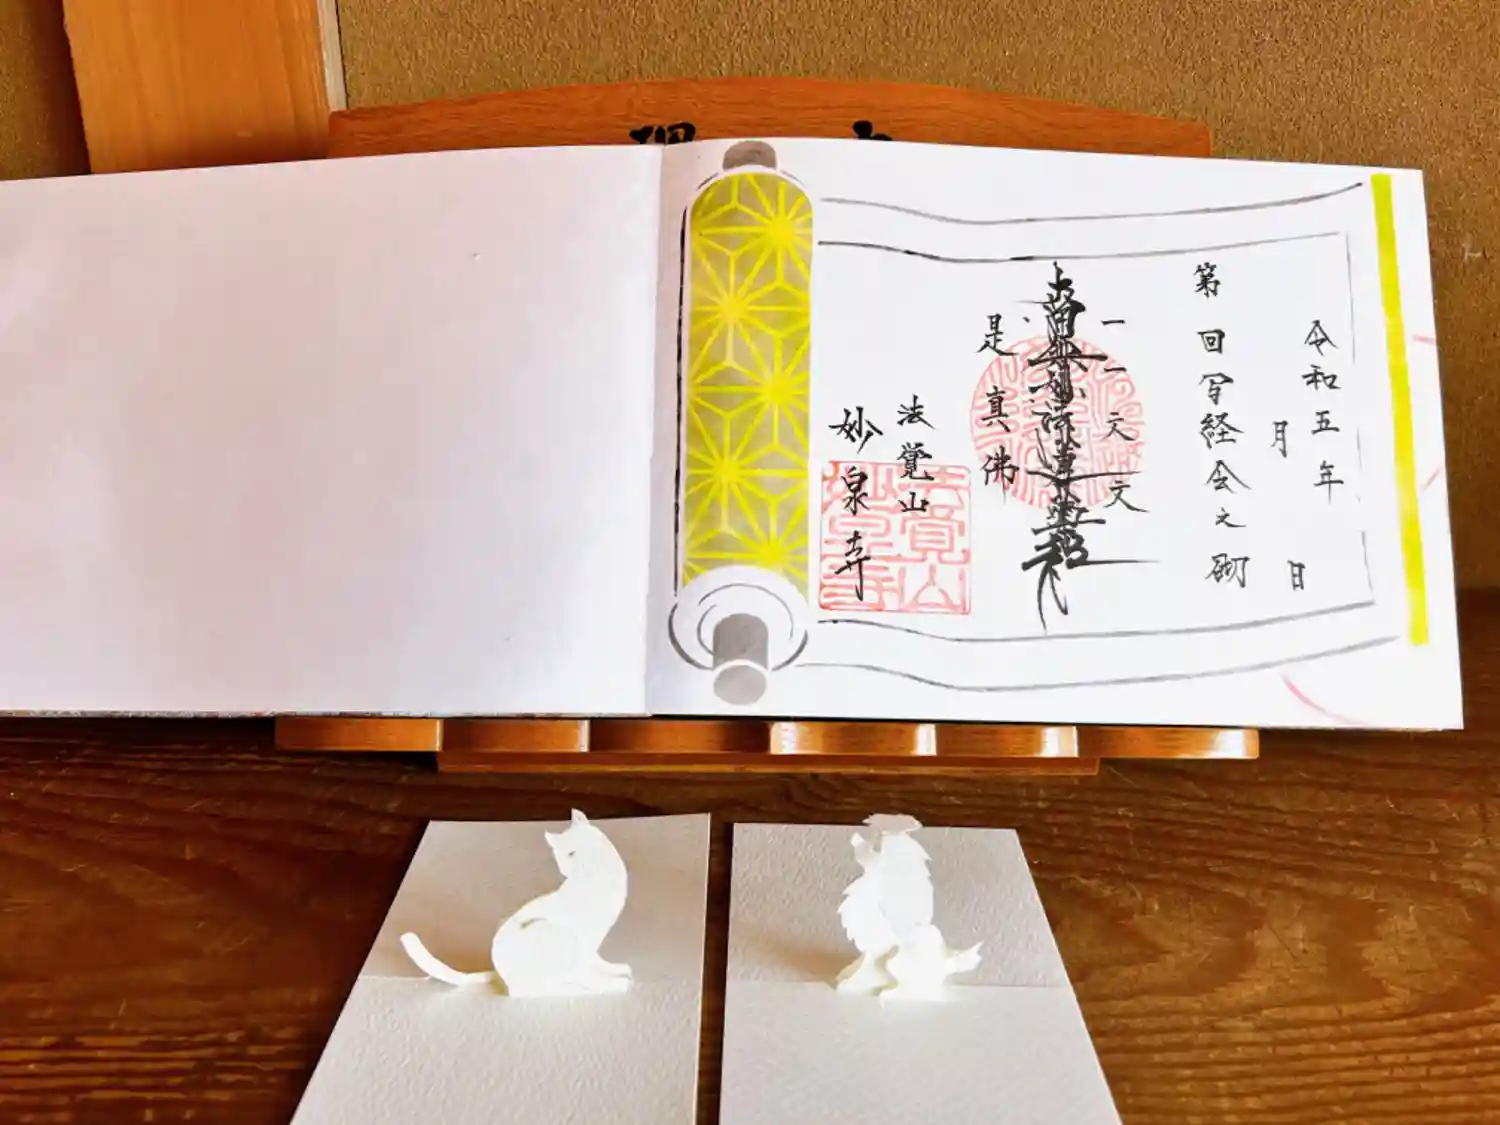 令和五年 月 日
第 回 写経会文 砌
一一文文
南無妙法蓮華経
是真佛
法覚山
妙泉寺
法覚山
妙泉寺